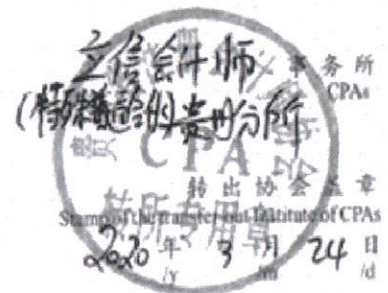 立信会计师
事务所
CPAs
(特殊普通合伙)贵州分所
CPA
转出协会盖章
Stamp of the transfer-out Institute of CPAs
转所专用章
2020 年 3 月 24 日
/y /m /d